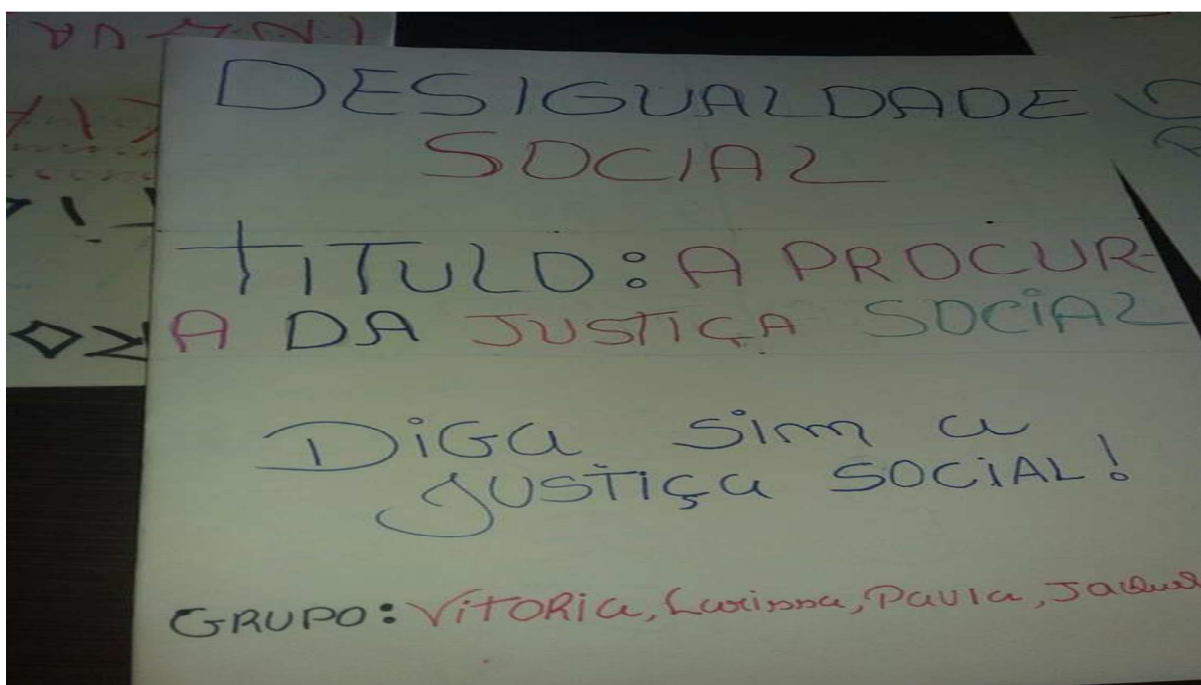 DESIGUALDADE
SOCIAL
TITULO: A PROCUR-
A DA JUSTIÇA SOCIAL
DIGA SIM A
JUSTIÇA SOCIAL!
GRUPO: VITORIA, Larissa, PAULA,